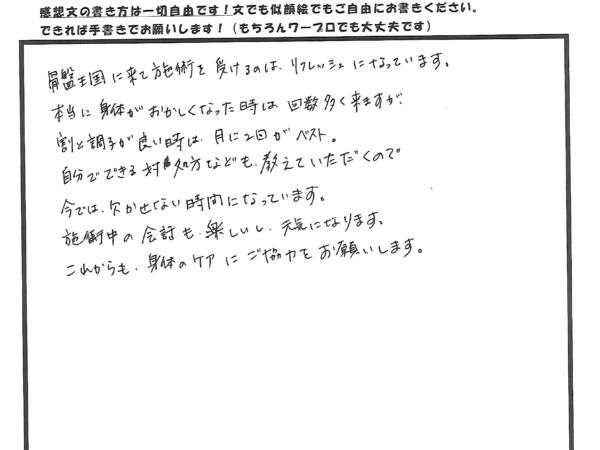 感想文の書き方は一切自由です！文でも似顔絵でもご自由にお書きください。
できれば手書きでお願いします！（もちろんワープロでも大丈夫です）
骨盤王国に来て施術を受けるのは、リフレッシュになっています。
本当に身体がおかしくなった時は回数多く来ますが、
割と調子が良い時は、月に2回がベスト。
自分でできる対処方なども、教えていただくので
今では、欠かせない時間になっています。
施術中の会話も、楽しいし、元気になります。
これからも、身体のケアにご協力をお願いします。